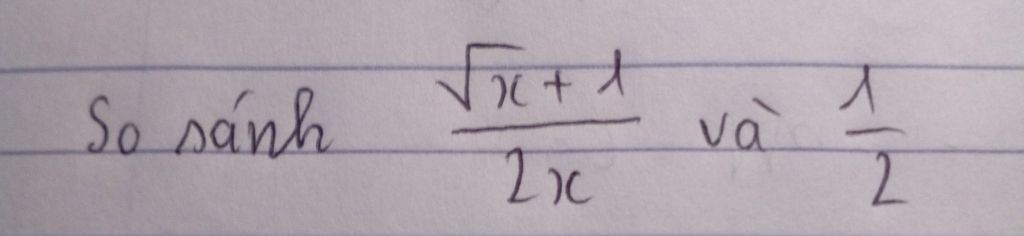 So sánh \frac{\sqrt{x}+1}{2x} và \frac{1}{2}